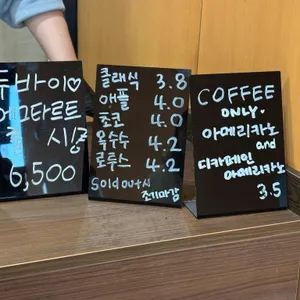 두바이♡
에그타르트
출시중
6,500
클래식 3.8
애플 4.0
초코 4.0
옥수수 4.2
로투스 4.2
Sold out시
조기마감
COFFEE
ONLY.
아메리카노
and
디카페인
아메리카노
3.5